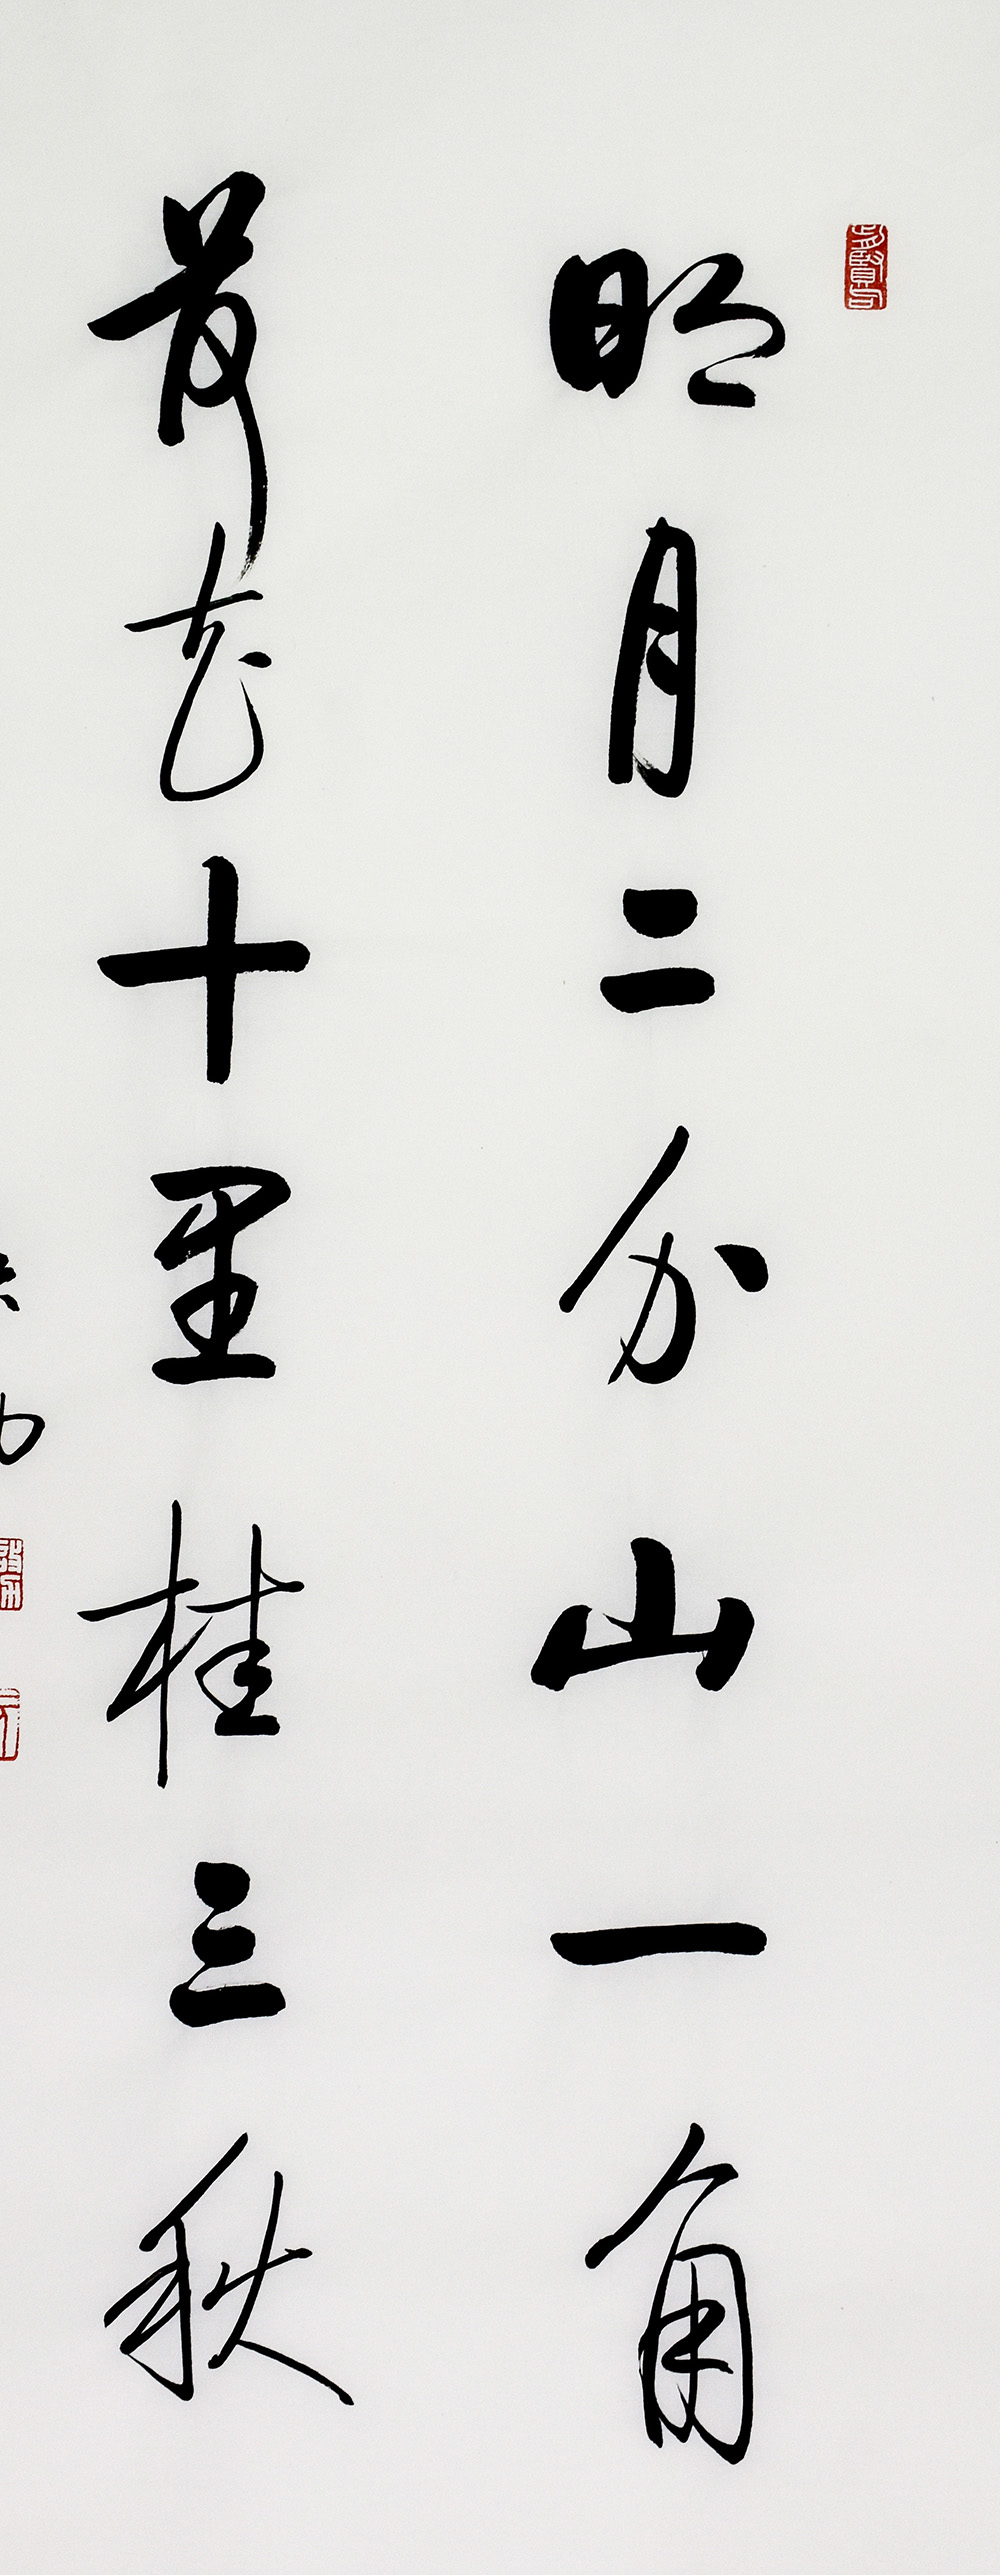 明月二分山一角
荷花十里桂三秋